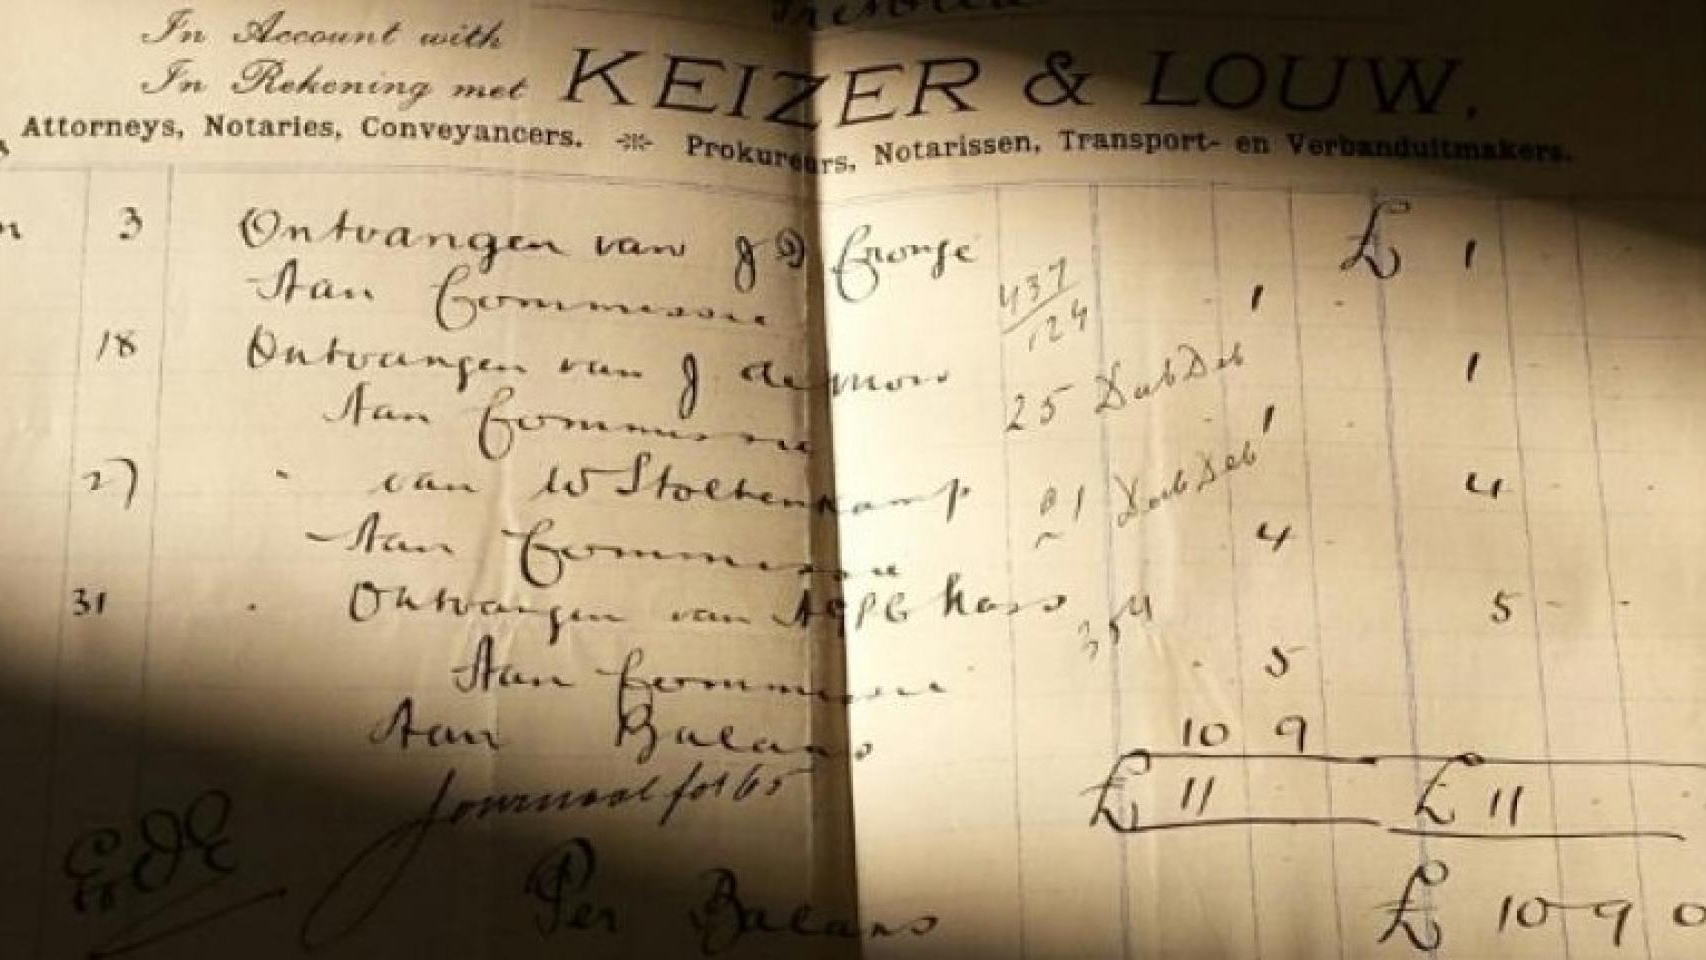 In Account with
In Rekening met KEIZER & LOUW.
Attorneys, Notaries, Conveyancers. Prokureurs, Notarissen, Transport- en Verbanduitmakers.
3 Ontvangen van J D Cronje £ 1
Aan Commissie 437/124 1
18 Ontvangen van J de 1
Aan Commissie 25 Dub Deb 1
27 van W Stoltenkamp 4
Aan Commissie 4
31 Ontvangen van 354 5
Aan Commissie 5
Aan Balans 10 9
£ 11 £ 11
Journaal fol 65
Per Balans £ 10 9 0